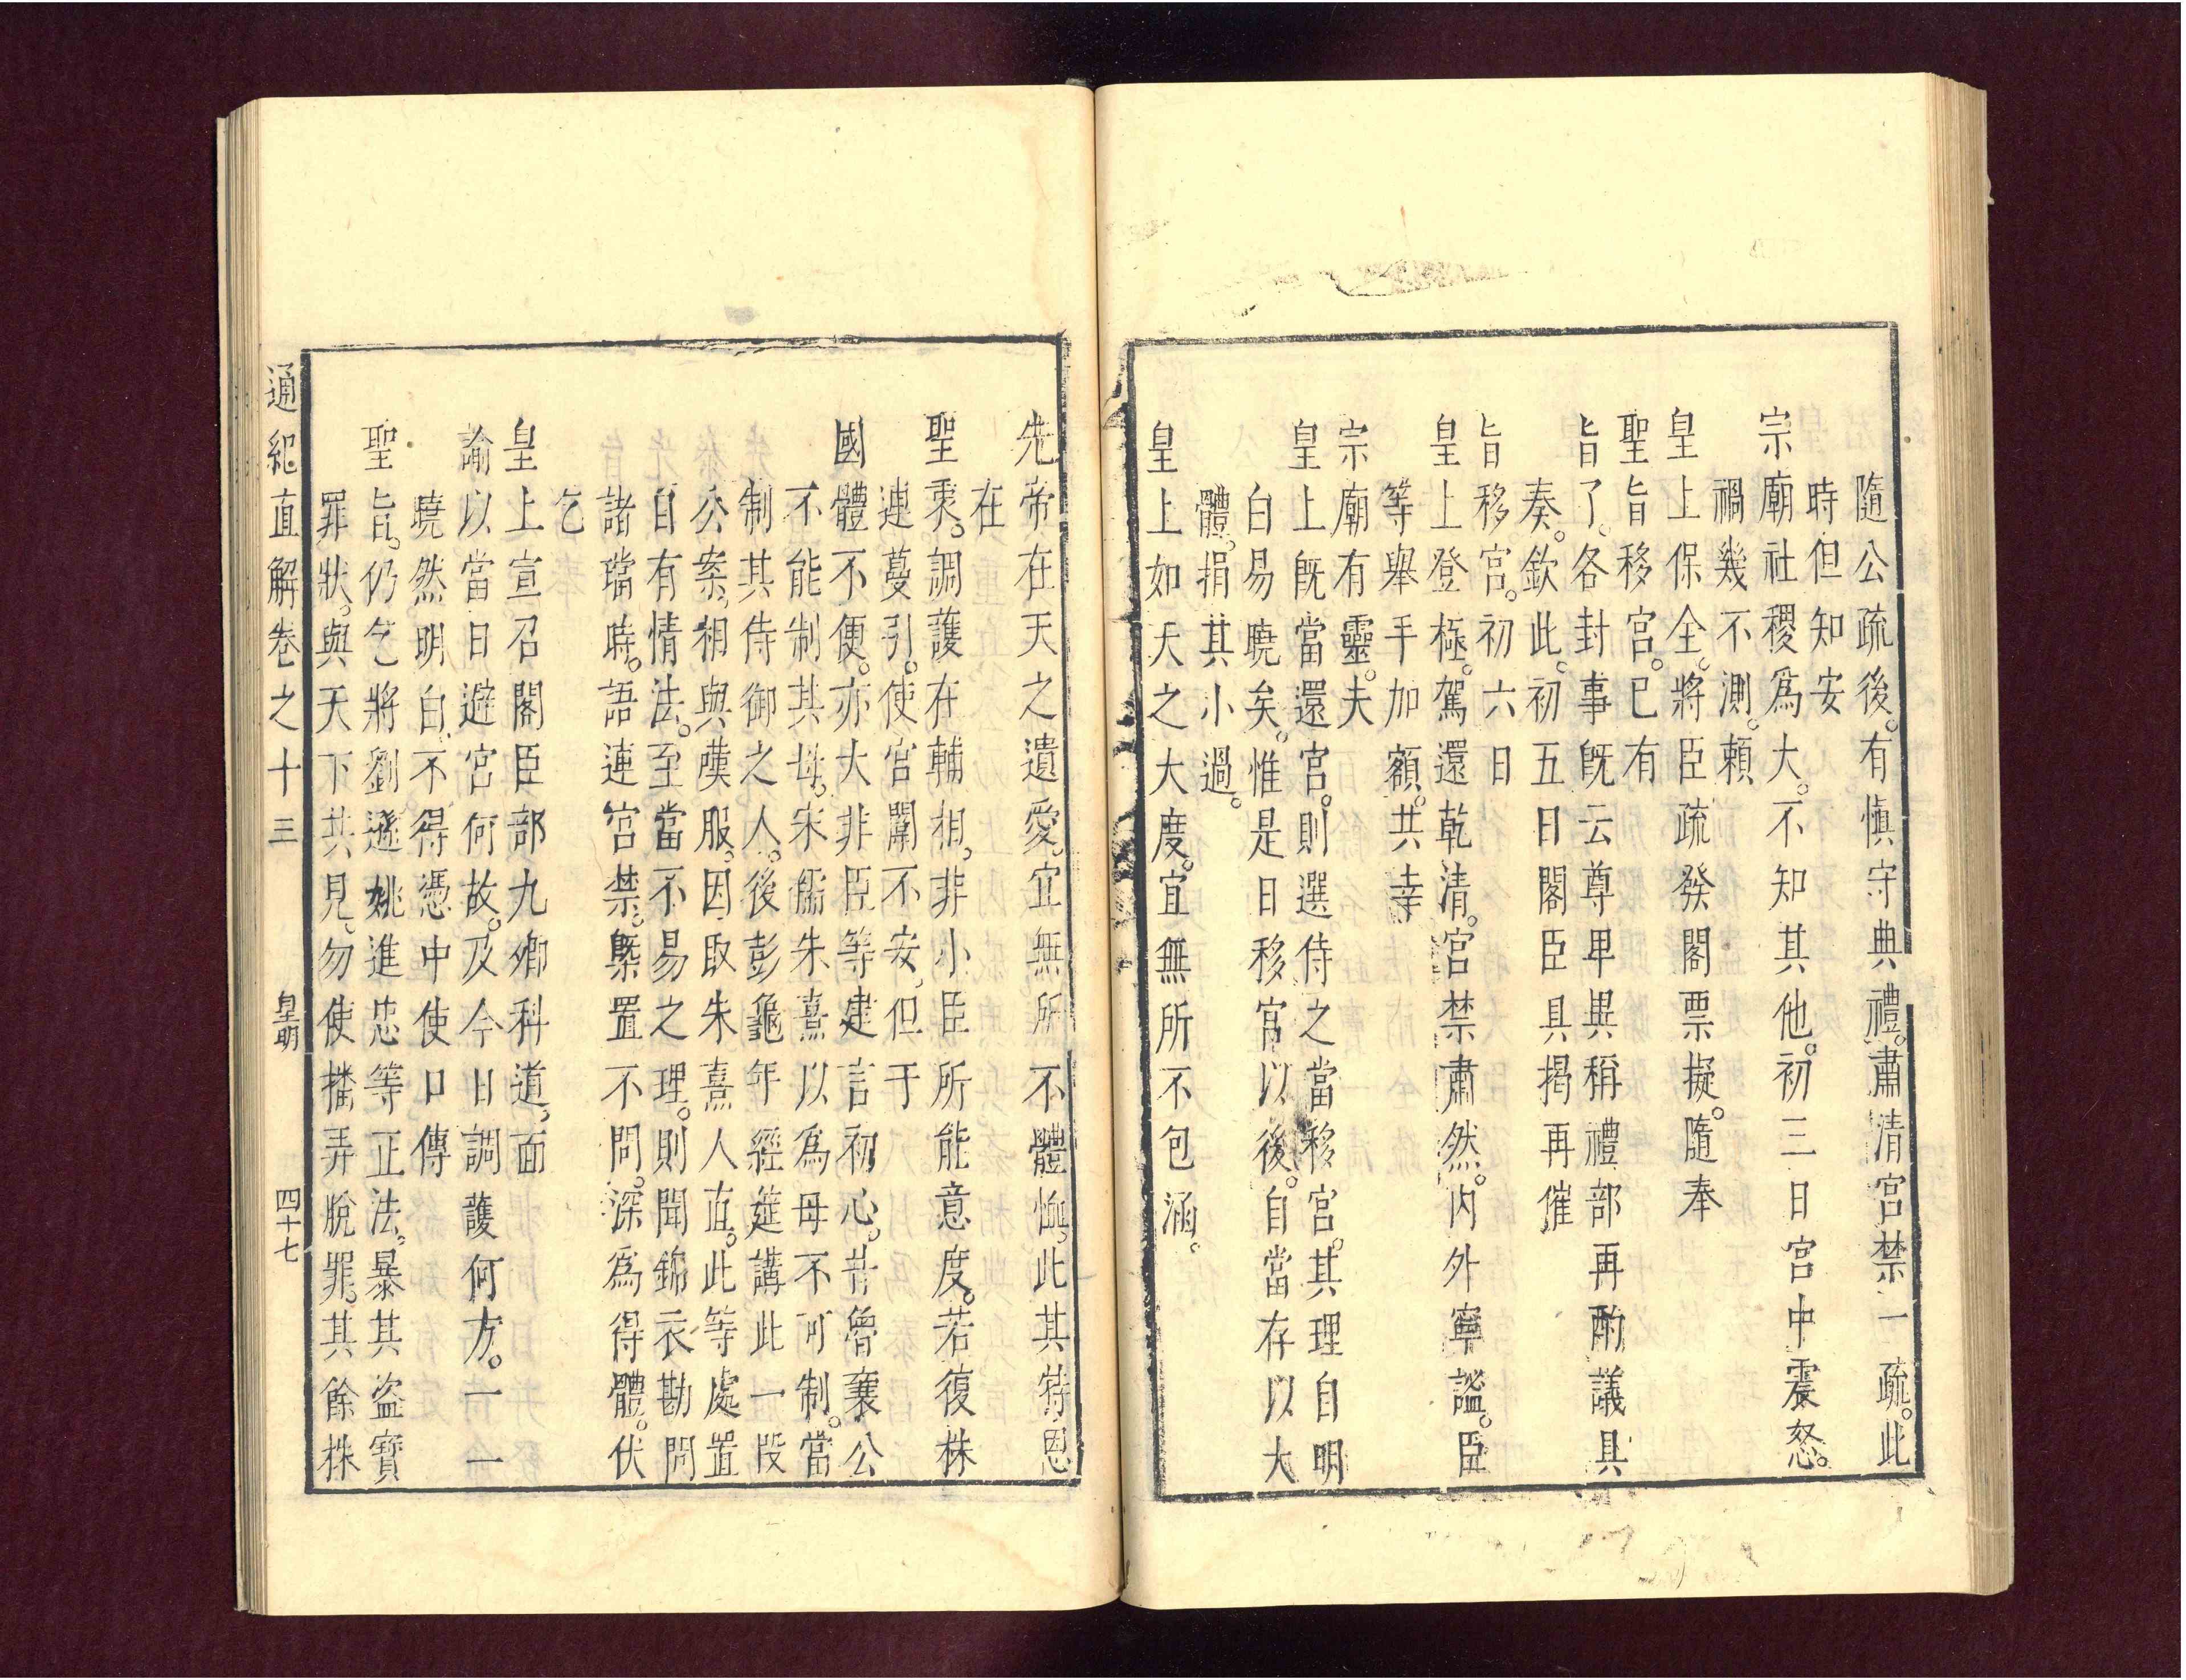 隨公疏後。有慎守典禮。肅清宮禁一疏。此
時但知安
宗廟社稷爲大。不知其他。初三日宮中震怒。
禍幾不測。賴
皇上保全。將臣疏發閣票擬。隨奉
聖旨移宮。已有
旨了。各封事既云尊卑異稱禮部再酌議具
奏。欽此。初五日閣臣具揭再催
旨移宮。初六日
皇上登極。駕還乾清。宮禁肅然。內外寧謐。臣
等舉手加額。共幸
宗廟有靈。夫
皇上既當還宮。則選侍之當移宮。其理自明
白易曉矣。惟是日移宮以後。自當存以大
體。捐其小過。
皇上如天之大度。宜無所不包涵。
先帝在天之遺愛。宜無所不體恤。此其特恩
在
聖衷。調護在輔相。非小臣所能意度。若復株
連蔓引。使宮闈不安。但于
國體不便。亦大非臣等建言初心。昔魯襄公
不能制其母。宋儒朱熹以爲母不可制。當
制其侍御之人。後彭龜年經筵講此一段
公案。相與嘆服。因取朱熹人直。此等處置
自有情法。至當不易之理。則聞錦衣勘問
諸璫時。語連宮禁。槩置不問。深爲得體。伏
乞
皇上宣召閣臣部九卿科道。面
諭以當日避宮何故。及今日調護何方。一一
曉然明白。不得憑中使口傳
聖旨。仍乞將劉遜姚進忠等正法。暴其盜寶
罪狀。與天下共見。勿使播弄脫罪。其餘株
通紀直解卷之十三 皇明 四十七